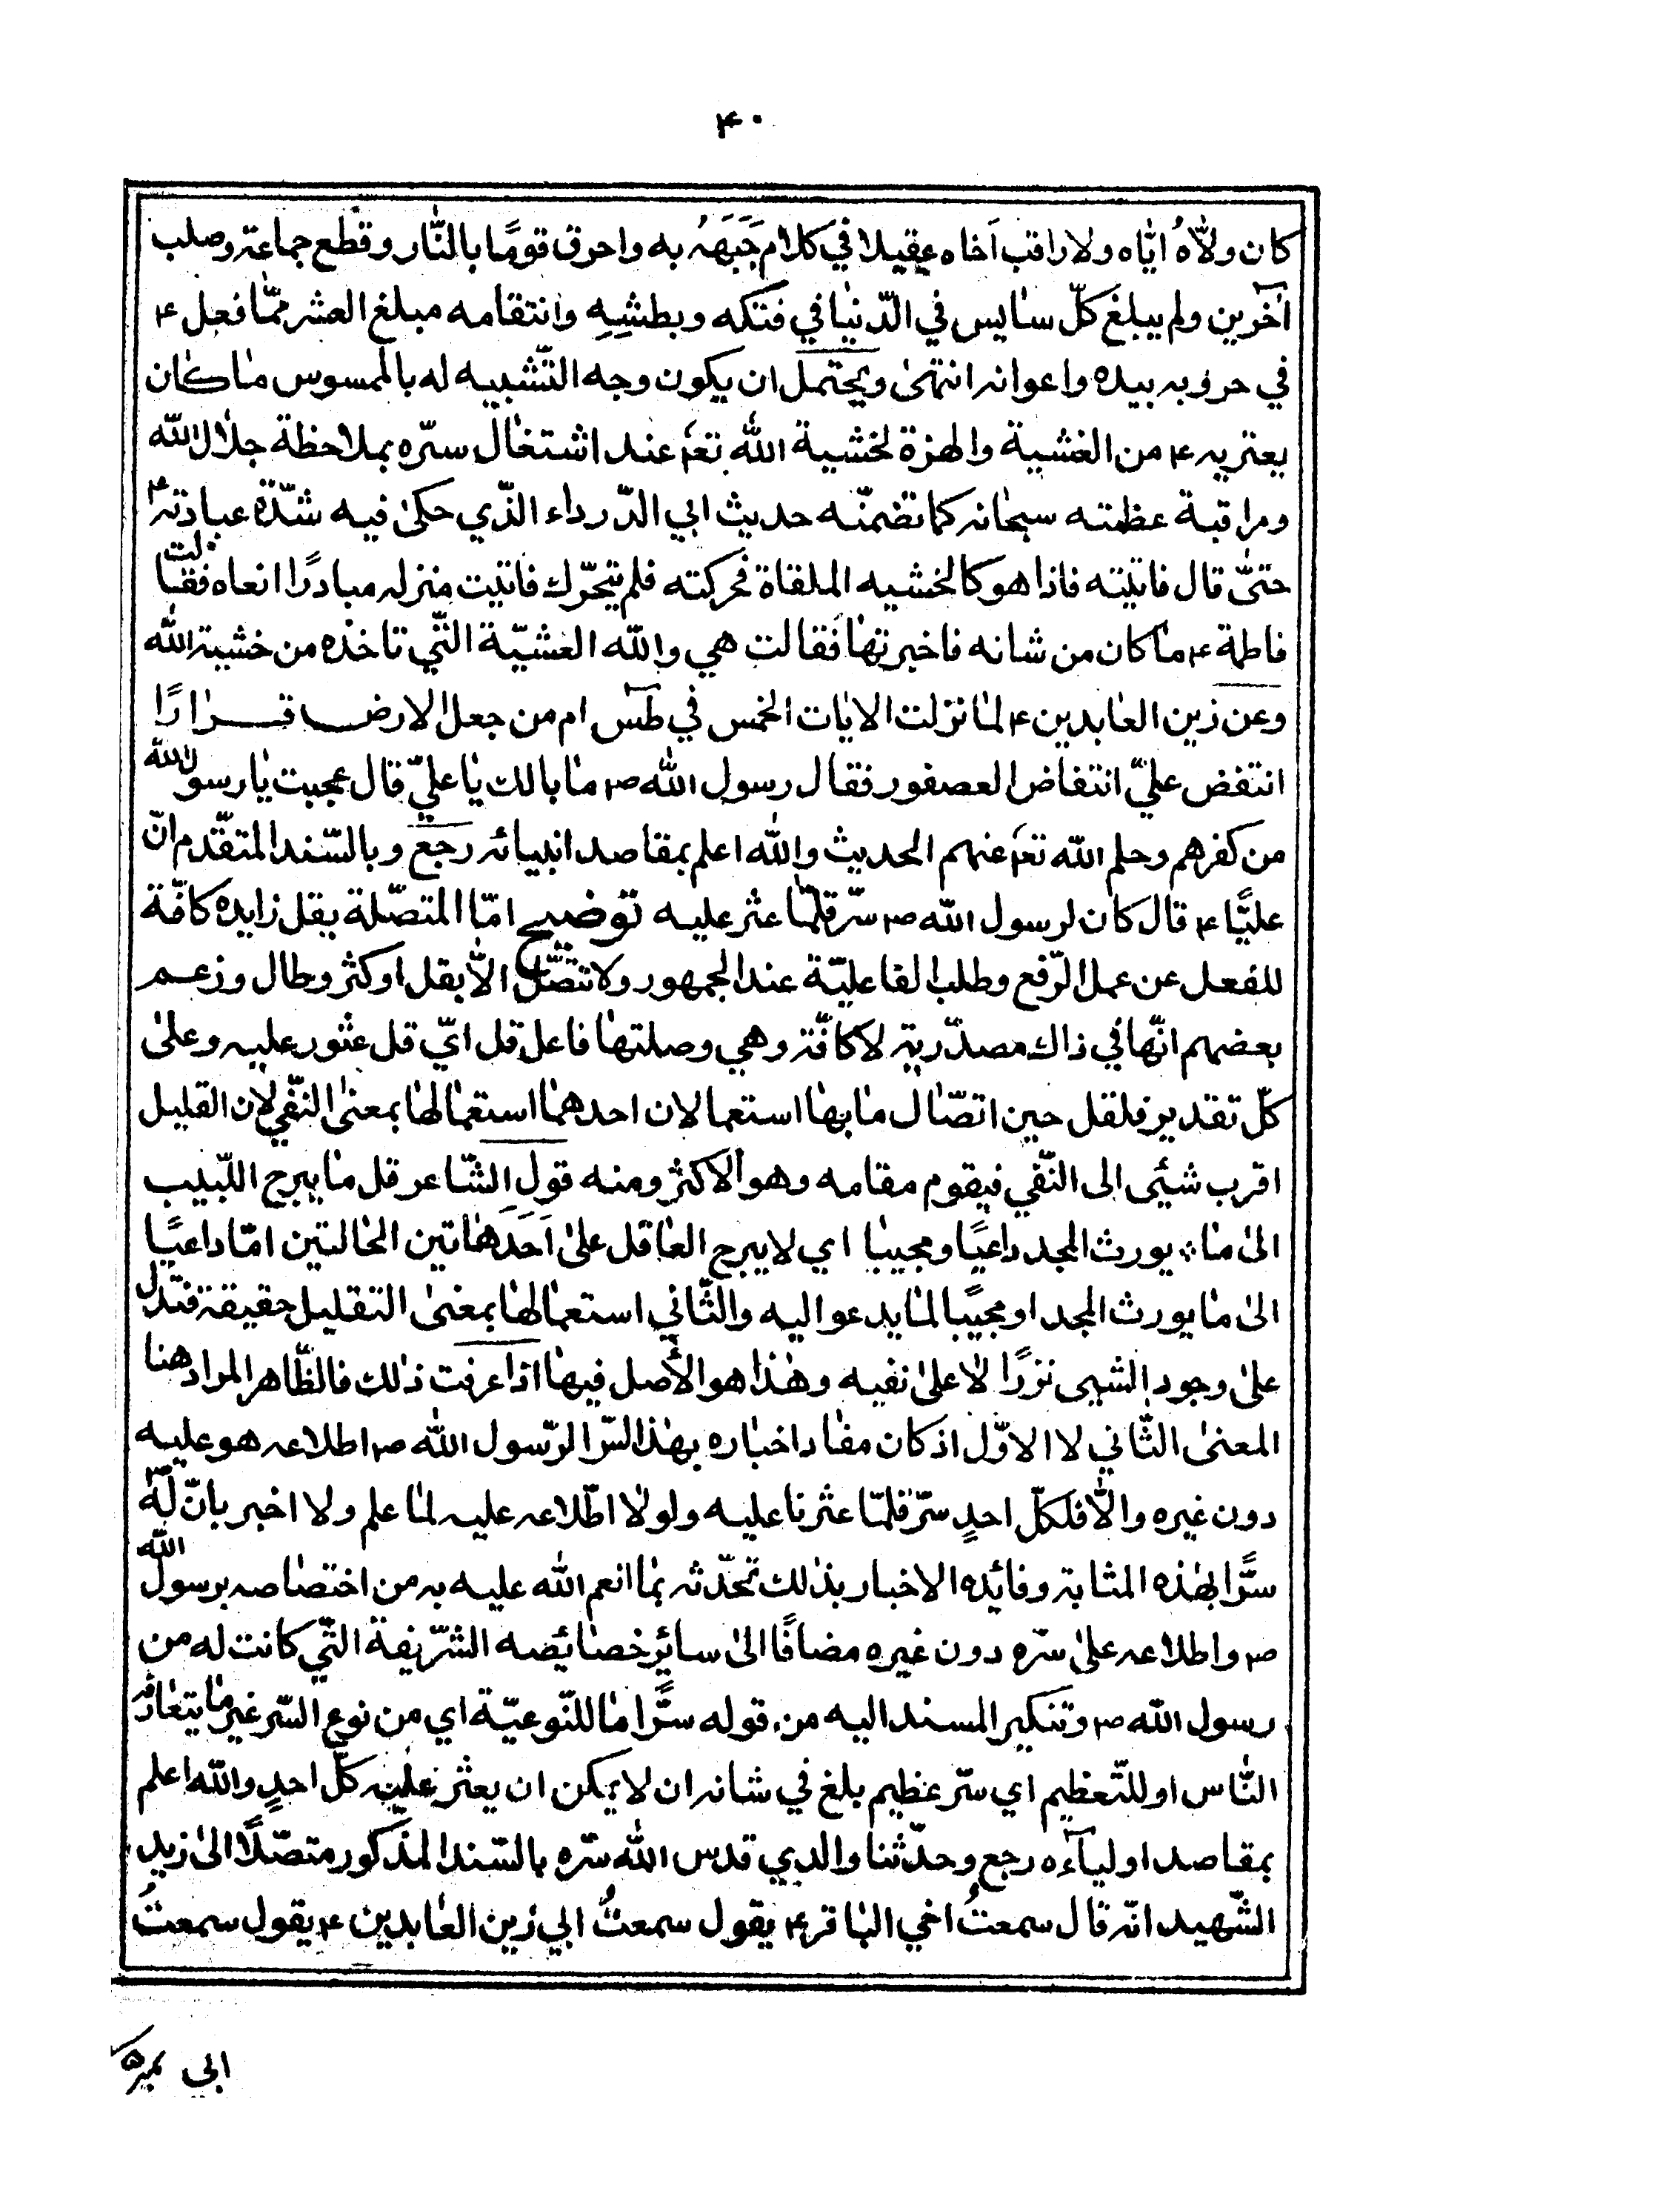 ۴۰
كان ولّاهُ ايّاه ولا راقب اَخاه عقيلا في كلام جَبَهَهُ به واحرق قومًا بالنّار وقطع جماعة وصلب
آخرين ولم يبلغ كلّ سايس في الدّنيا في فتكه وبطشِهِ وانتقامه مبلغ العشر ممّا فعل ع
في حروبه بيده واعوانه انتهىٰ ويحتمل ان يكون وجه التّشبيه له بالممسوس ما كان
يعتريه ع من الغشية والهزة لخشية الله تعم عند اشتغال سرّه بملاحظة جلال الله
ومراقبة عظمته سبحانه كما تضمنّه حديث ابي الدّرداء الذّي حكىٰ فيه شدّة عبادته ع
حتىّ قال فاتيته فاذا هو كالخشيه الملقاة فحركته فلم يتحرّك فاتيت منزله مبادرًا انعاه فقالت
فاطمة ع ما كان من شانه فاخبرتها فقالت هي والله الغشيّة التّي تاخذه من خشية الله
وعن زين العابدين ع لما نزلت الايات الخمس في طٓس ام من جعل الارض قرارًا
انتفض عليّ انتفاض العصفور فقال رسول الله ص ما بالك يا عليّ قال عجبت يا رسول الله
من كفرهم وحلم الله تعم عنهم الحديث والله اعلم بمقاصد انبيائه رجع وبالسّند المتقدّم انّ
عليًّا ع قال كان لرسول الله ص سرّ قلمّا عثر عليه توضيح امّا المتصّلة بقل زايده كافّة
للفعل عن عمل الرّفع وطلب الفاعليّة عند الجمهور ولا تتصّل الاّ بقل او كثر وطال وزعم
بعضهم انّها في ذاك مصدّرية لا كافّة وهي وصلتها فاعل قل ايّ قل عثور عليه وعلىٰ
كلّ تقدير فلقل حين اتصّال ما بها استعمالان احدهما استعمالها بمعنىٰ النّفي لان القليل
اقرب شيئى الى النّفي فيقوم مقامه وهو الاكثر ومنه قول الشّاعر قل ما يبرح اللّبيب
الىٰ ما ؞ يورث المجد داعيًا ومجيبا اي لا يبرح العاقل علىٰ اَحَدِ هاتين الحالتين امّا داعيًا
الىٰ ما يورث المجد او مجيبًا لما يدعو اليه والثّاني استعمالها بمعنىٰ التقليل حقيقة فتدل
علىٰ وجود الشيى نزرًا لا علىٰ نفيه وهٰذا هو الأصل فيها اذا عرفت ذٰلك فالظّاهر المراد هنا
المعنىٰ الثّاني لا الاوّل اذ كان مفاد اخباره بهٰذا السّر الرّسول الله ص اطلاعه هو عليه
دون غيره والّا فلكلّ احدٍ سرّ قلمّا عثرنا عليه ولولا اطّلاعه عليه لما علم ولا اخبر بانّ له ص
سرًّا بهٰذه المثابة وفائده الاخبار بذٰلك تحدّثه بما انعم الله عليه به من اختصاصه برسول الله
ص واطلاعه علىٰ سرّه دون غيره مضافًا الىٰ سائر خصائصه الشرّيفة التّي كانت له من
رسول الله ص وتنكير المسند اليه من قوله سرًّا ما للنّوعيّة اي من نوع السّر غير ما يتعارفه
النّاس او للتّعظيم اي سرّ عظيم بلغ في شانه ان لا يمكن ان يعثر عليه كلّ احدٍ والله اعلم
بمقاصد اوليآءه رجع وحدّثنا والدي قدس الله سرّه بالسّند المذّكور متصّلًا الىٰ زيد
الشّهيد انّه قال سمعتُ اخي الباقر ع يقول سمعتُ ابي زين العابدين ع يقول سمعتُ
ابي